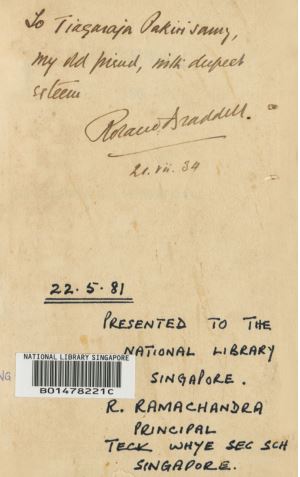 To Tiagaraja Pakirisamy,
my old friend, with deepest
esteem
Roland Braddell.
21. vii. 34
22.5.81
PRESENTED TO THE
NATIONAL LIBRARY
SINGAPORE.
R. RAMACHANDRA
PRINCIPAL
TECK WHYE SEC SCH
SINGAPORE.
NATIONAL LIBRARY SINGAPORE
B01478221C
NG